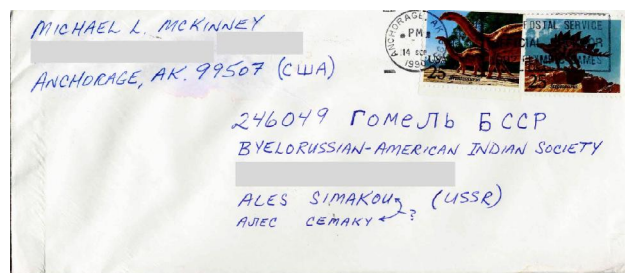 MICHAEL L. MCKINNEY
ANCHORAGE, AK. 99507 (США)
ANCHORAGE, AK
PM
14 SEP
1990
25
POSTAL SERVICE
25
246049 ГОМЕЛЬ БССР
BYELORUSSIAN-AMERICAN INDIAN SOCIETY
ALES SIMAKOU (USSR)
АЛЕС СЕМАКУ ?